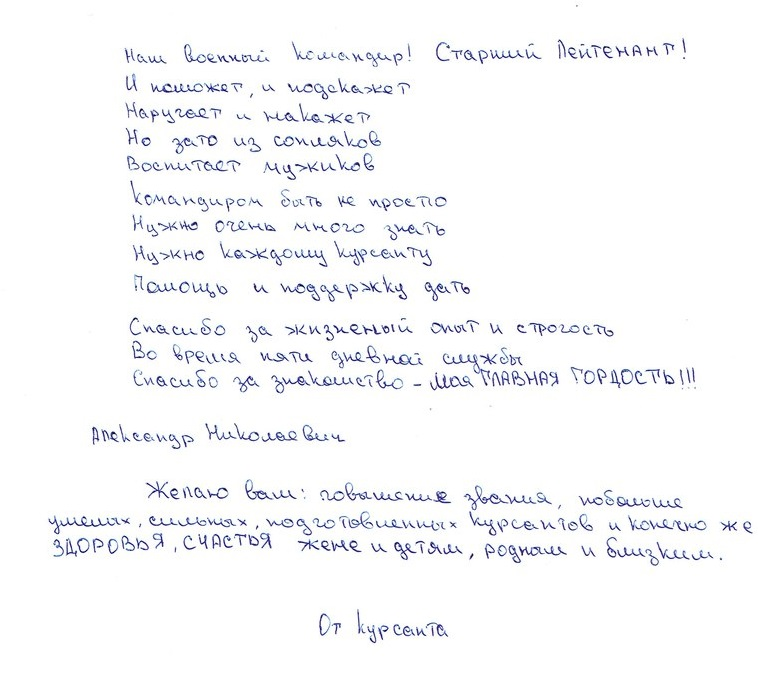 Наш военный командир! Старший Лейтенант!
И поможет, и подскажет
Наругает и накажет
Но зато из сопляков
Воспитает мужиков
Командиром быть не просто
Нужно очень много знать
Нужно каждому курсанту
Помощь и поддержку дать
Спасибо за жизненый опыт и строгость
Во время пяти дневной службы
Спасибо за знакомство – моя ГЛАВНАЯ ГОРДОСТЬ!!!
Александр Николаевич
Желаю вам: повышение звания, побольше
умелых, сильных, подготовленных курсантов и конечно же
ЗДОРОВЬЯ, СЧАСТЬЯ жене и детям, родным и близким.
От курсанта